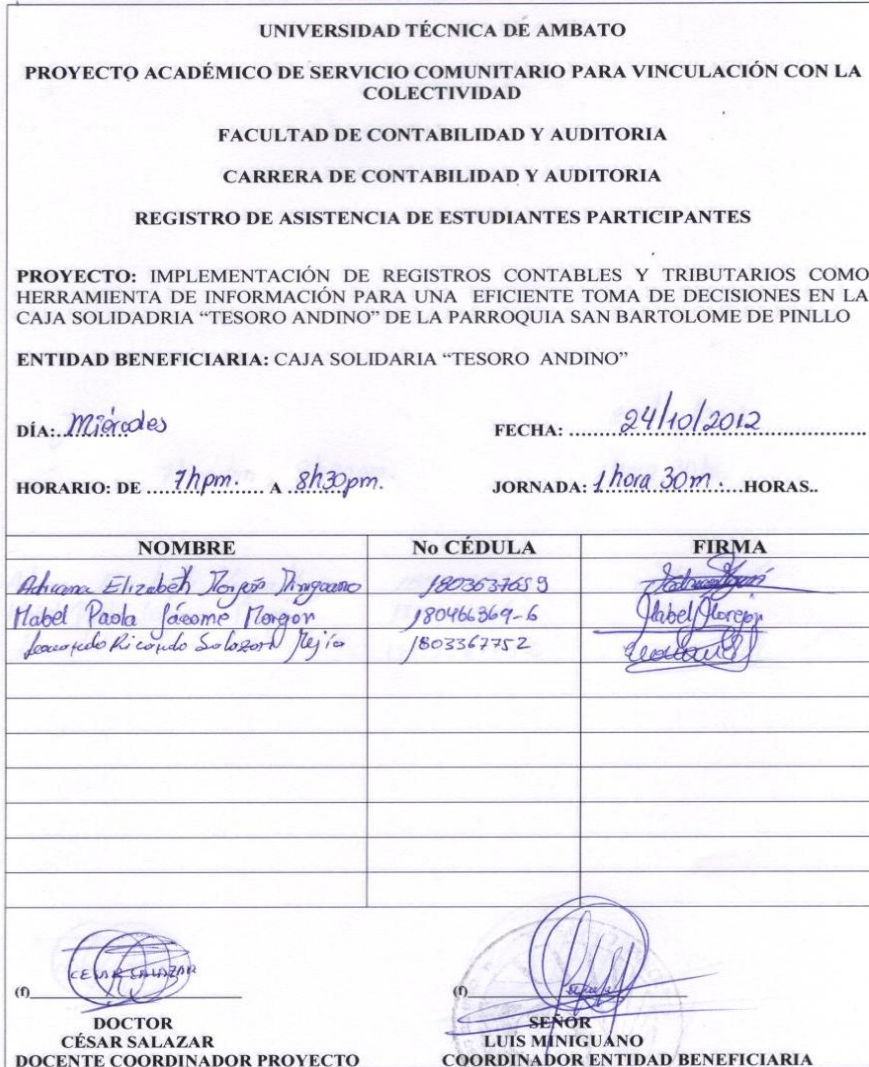 UNIVERSIDAD TÉCNICA DE AMBATO
PROYECTO ACADÉMICO DE SERVICIO COMUNITARIO PARA VINCULACIÓN CON LA
COLECTIVIDAD
FACULTAD DE CONTABILIDAD Y AUDITORIA
CARRERA DE CONTABILIDAD Y AUDITORIA
REGISTRO DE ASISTENCIA DE ESTUDIANTES PARTICIPANTES
PROYECTO: IMPLEMENTACIÓN DE REGISTROS CONTABLES Y TRIBUTARIOS COMO
HERRAMIENTA DE INFORMACIÓN PARA UNA EFICIENTE TOMA DE DECISIONES EN LA
CAJA SOLIDADRIA “TESORO ANDINO” DE LA PARROQUIA SAN BARTOLOME DE PINLLO
ENTIDAD BENEFICIARIA: CAJA SOLIDARIA “TESORO ANDINO”
DÍA: Miércoles FECHA: 24/10/2012
HORARIO: DE 7hpm. A 8h30pm. JORNADA: 1 hora 30m. HORAS..
NOMBRE No CÉDULA FIRMA
Adriana Elizabeth 1803637659
Mabel Paola Jácome Morejon 180466369-6 Mabel
Ricardo Salazar Mejía 1803367752
CESAR SALAZAR
(f) (f)
DOCTOR SEÑOR
CÉSAR SALAZAR LUIS MINIGUANO
DOCENTE COORDINADOR PROYECTO COORDINADOR ENTIDAD BENEFICIARIA